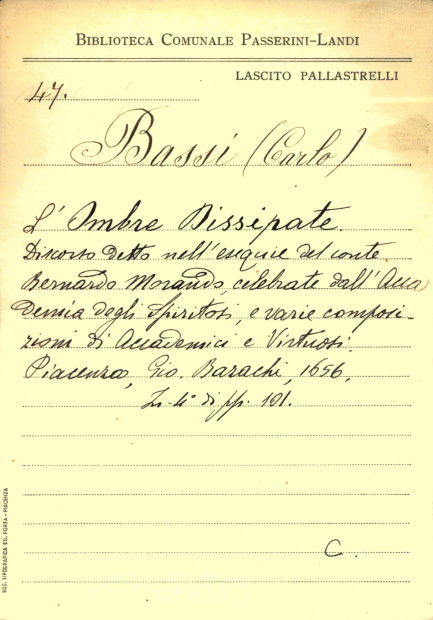 BIBLIOTECA COMUNALE PASSERINI-LANDI
LASCITO PALLASTRELLI
47.
Bassi (Carlo)
L'Ombre Dissipate.
Discorso detto nell'esequie del conte
Bernardo Morando, celebrate dall'Acca
demia degli Spiritosi, e varie composi-
zioni di Accademici e Virtuosi.
Piacenza, Gio. Bazachi, 1656,
In-4° di pp. 101.
C.
SOC. TIPOGRAFICA ED. PORTA - PIACENZA